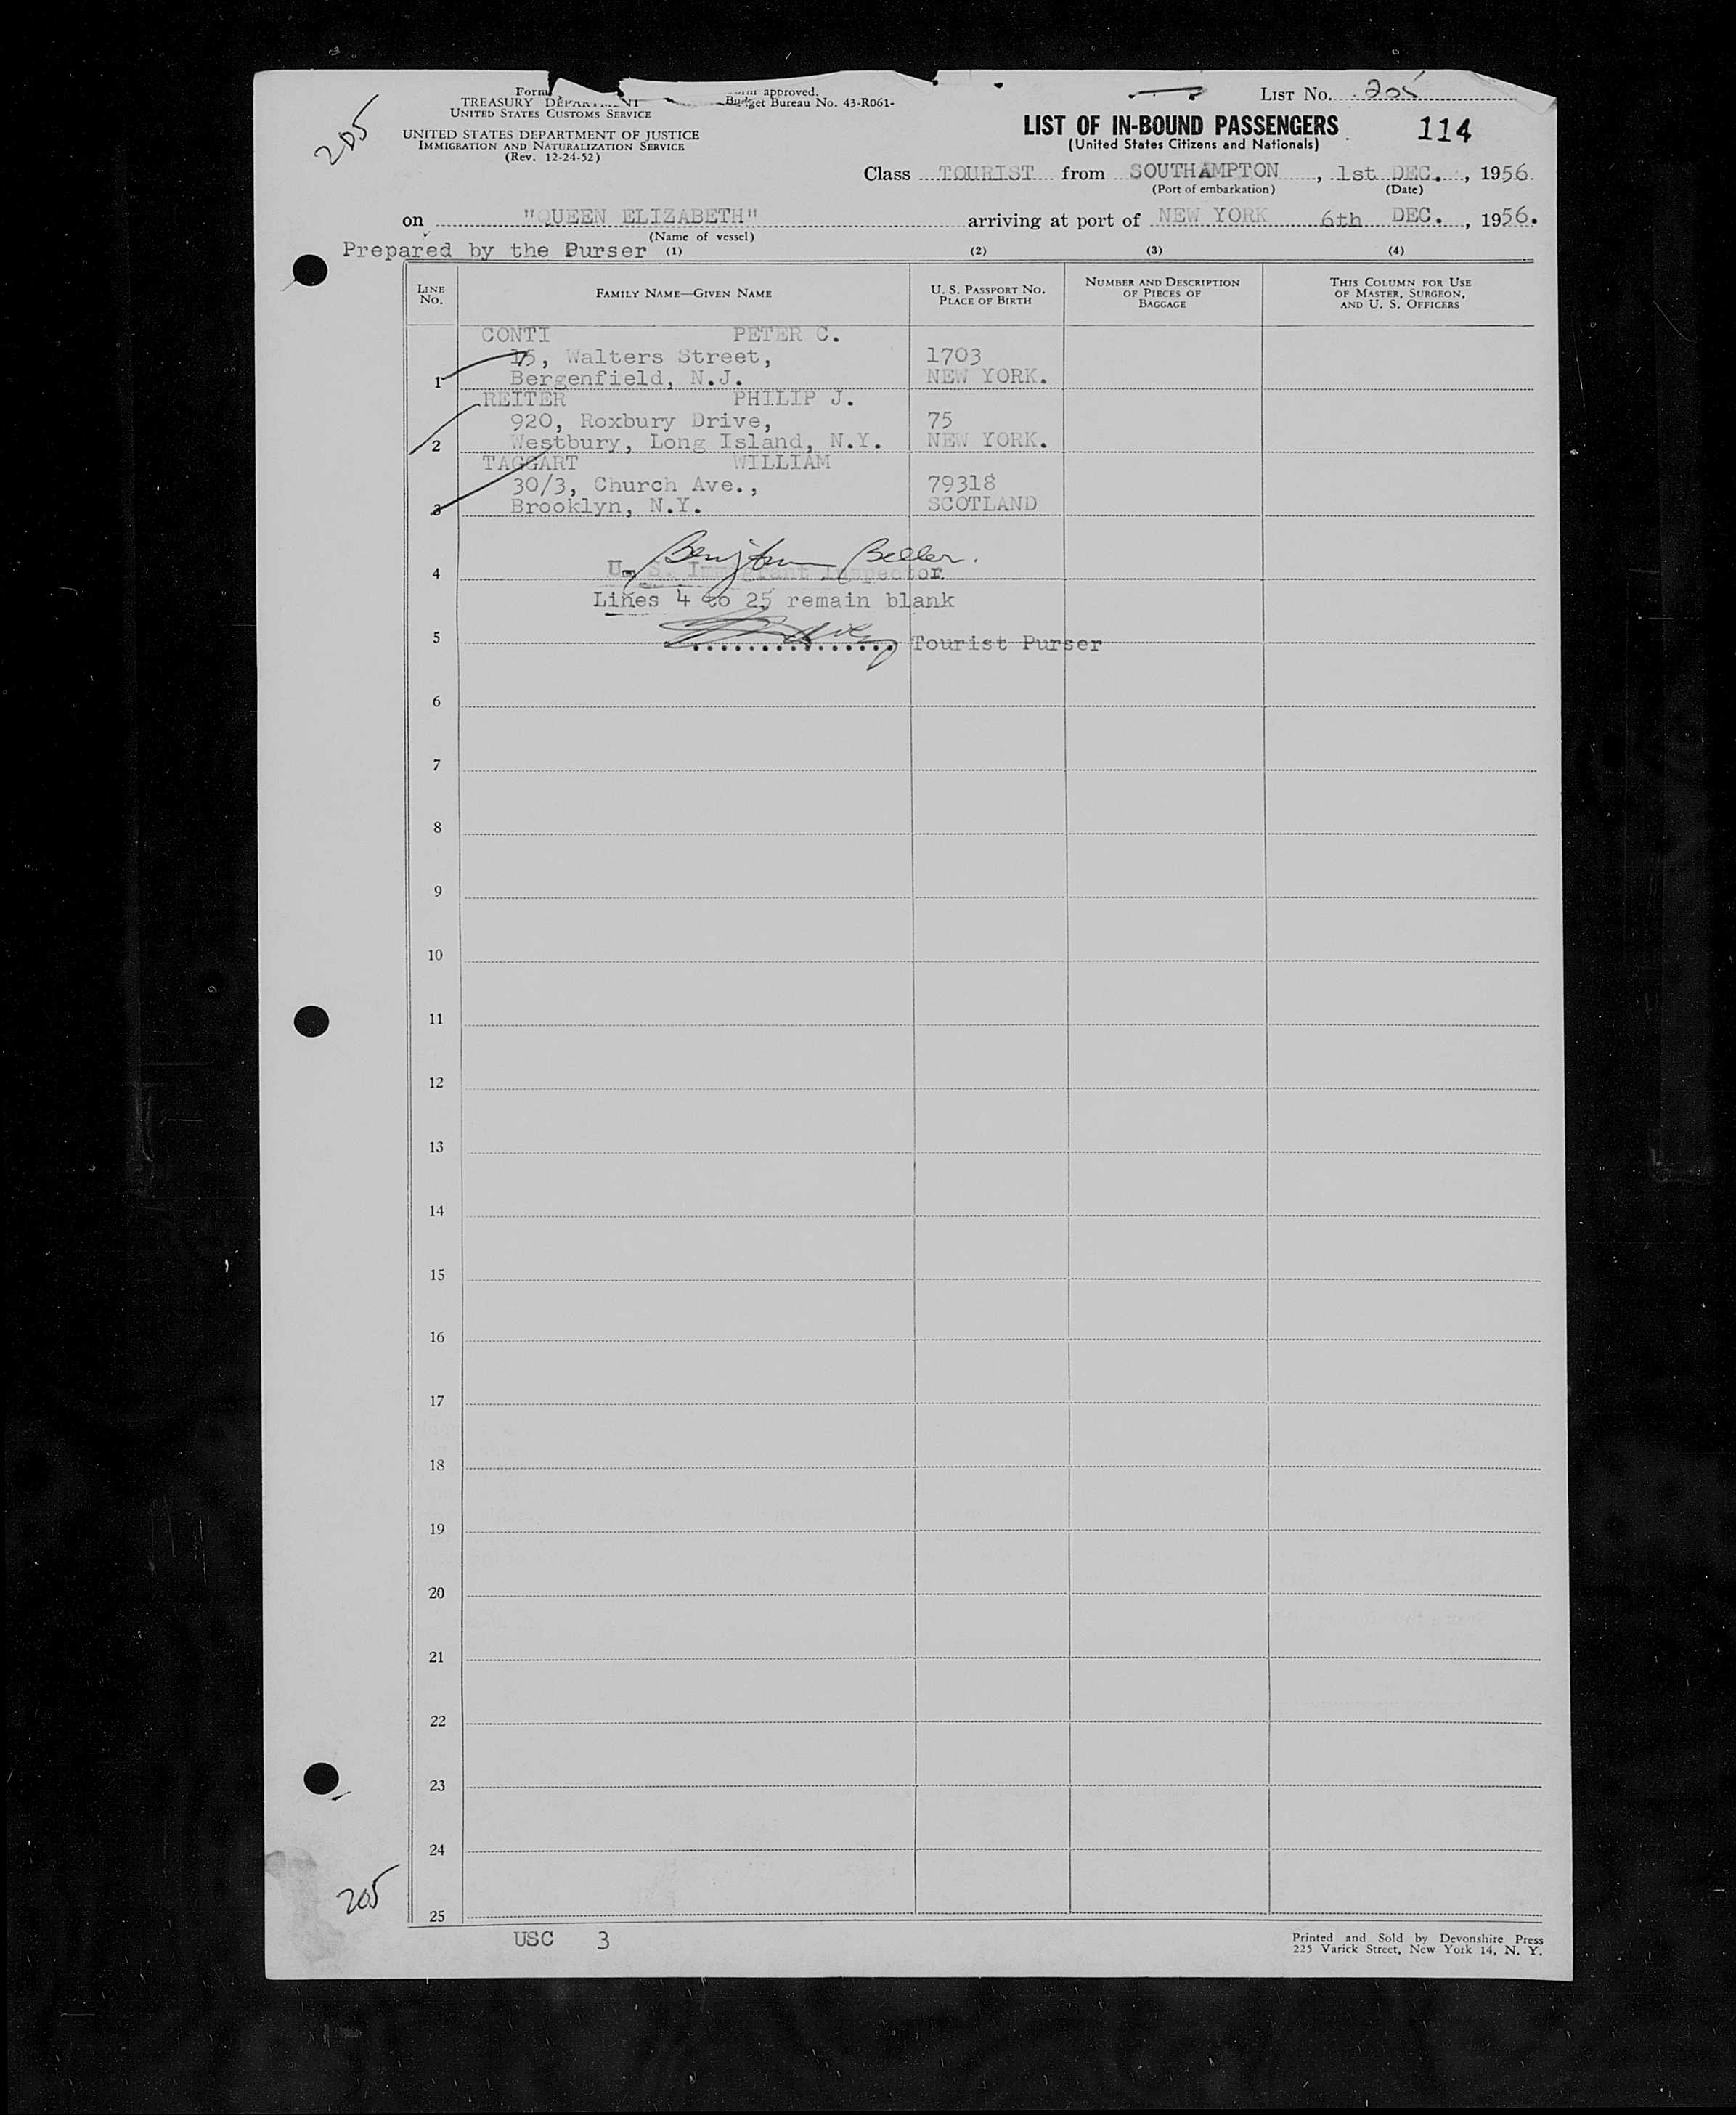 205
Form
TREASURY DEPARTMENT
UNITED STATES CUSTOMS SERVICE
UNITED STATES DEPARTMENT OF JUSTICE
IMMIGRATION AND NATURALIZATION SERVICE
(Rev. 12-24-52)
approved.
Budget Bureau No. 43-R061-
LIST NO. 205
LIST OF IN-BOUND PASSENGERS
114
(United States Citizens and Nationals)
Class TOURIST from SOUTHAMPTON, 1st DEC., 1956
(Port of embarkation) (Date)
on "QUEEN ELIZABETH" arriving at port of NEW YORK 6th DEC., 1956.
(Name of vessel)
Prepared by the Purser (1) (2) (3) (4)
LINE NO.
FAMILY NAME—GIVEN NAME
U. S. PASSPORT NO.
PLACE OF BIRTH
NUMBER AND DESCRIPTION
OF PIECES OF
BAGGAGE
THIS COLUMN FOR USE
OF MASTER, SURGEON,
AND U. S. OFFICERS
CONTI PETER C.
15, Walters Street, 1703
1 Bergenfield, N.J. NEW YORK.
REITER PHILIP J.
920, Roxbury Drive, 75
2 Westbury, Long Island, N.Y. NEW YORK.
TAGGART WILLIAM
30/3, Church Ave., 79318
3 Brooklyn, N.Y. SCOTLAND
Beller.
4 U. S. Immigrant Inspector
Lines 4 to 25 remain blank
5 Tourist Purser
6
7
8
9
10
11
12
13
14
15
16
17
18
19
20
21
22
23
24
205
25
USC 3
Printed and Sold by Devonshire Press
225 Varick Street, New York 14, N. Y.